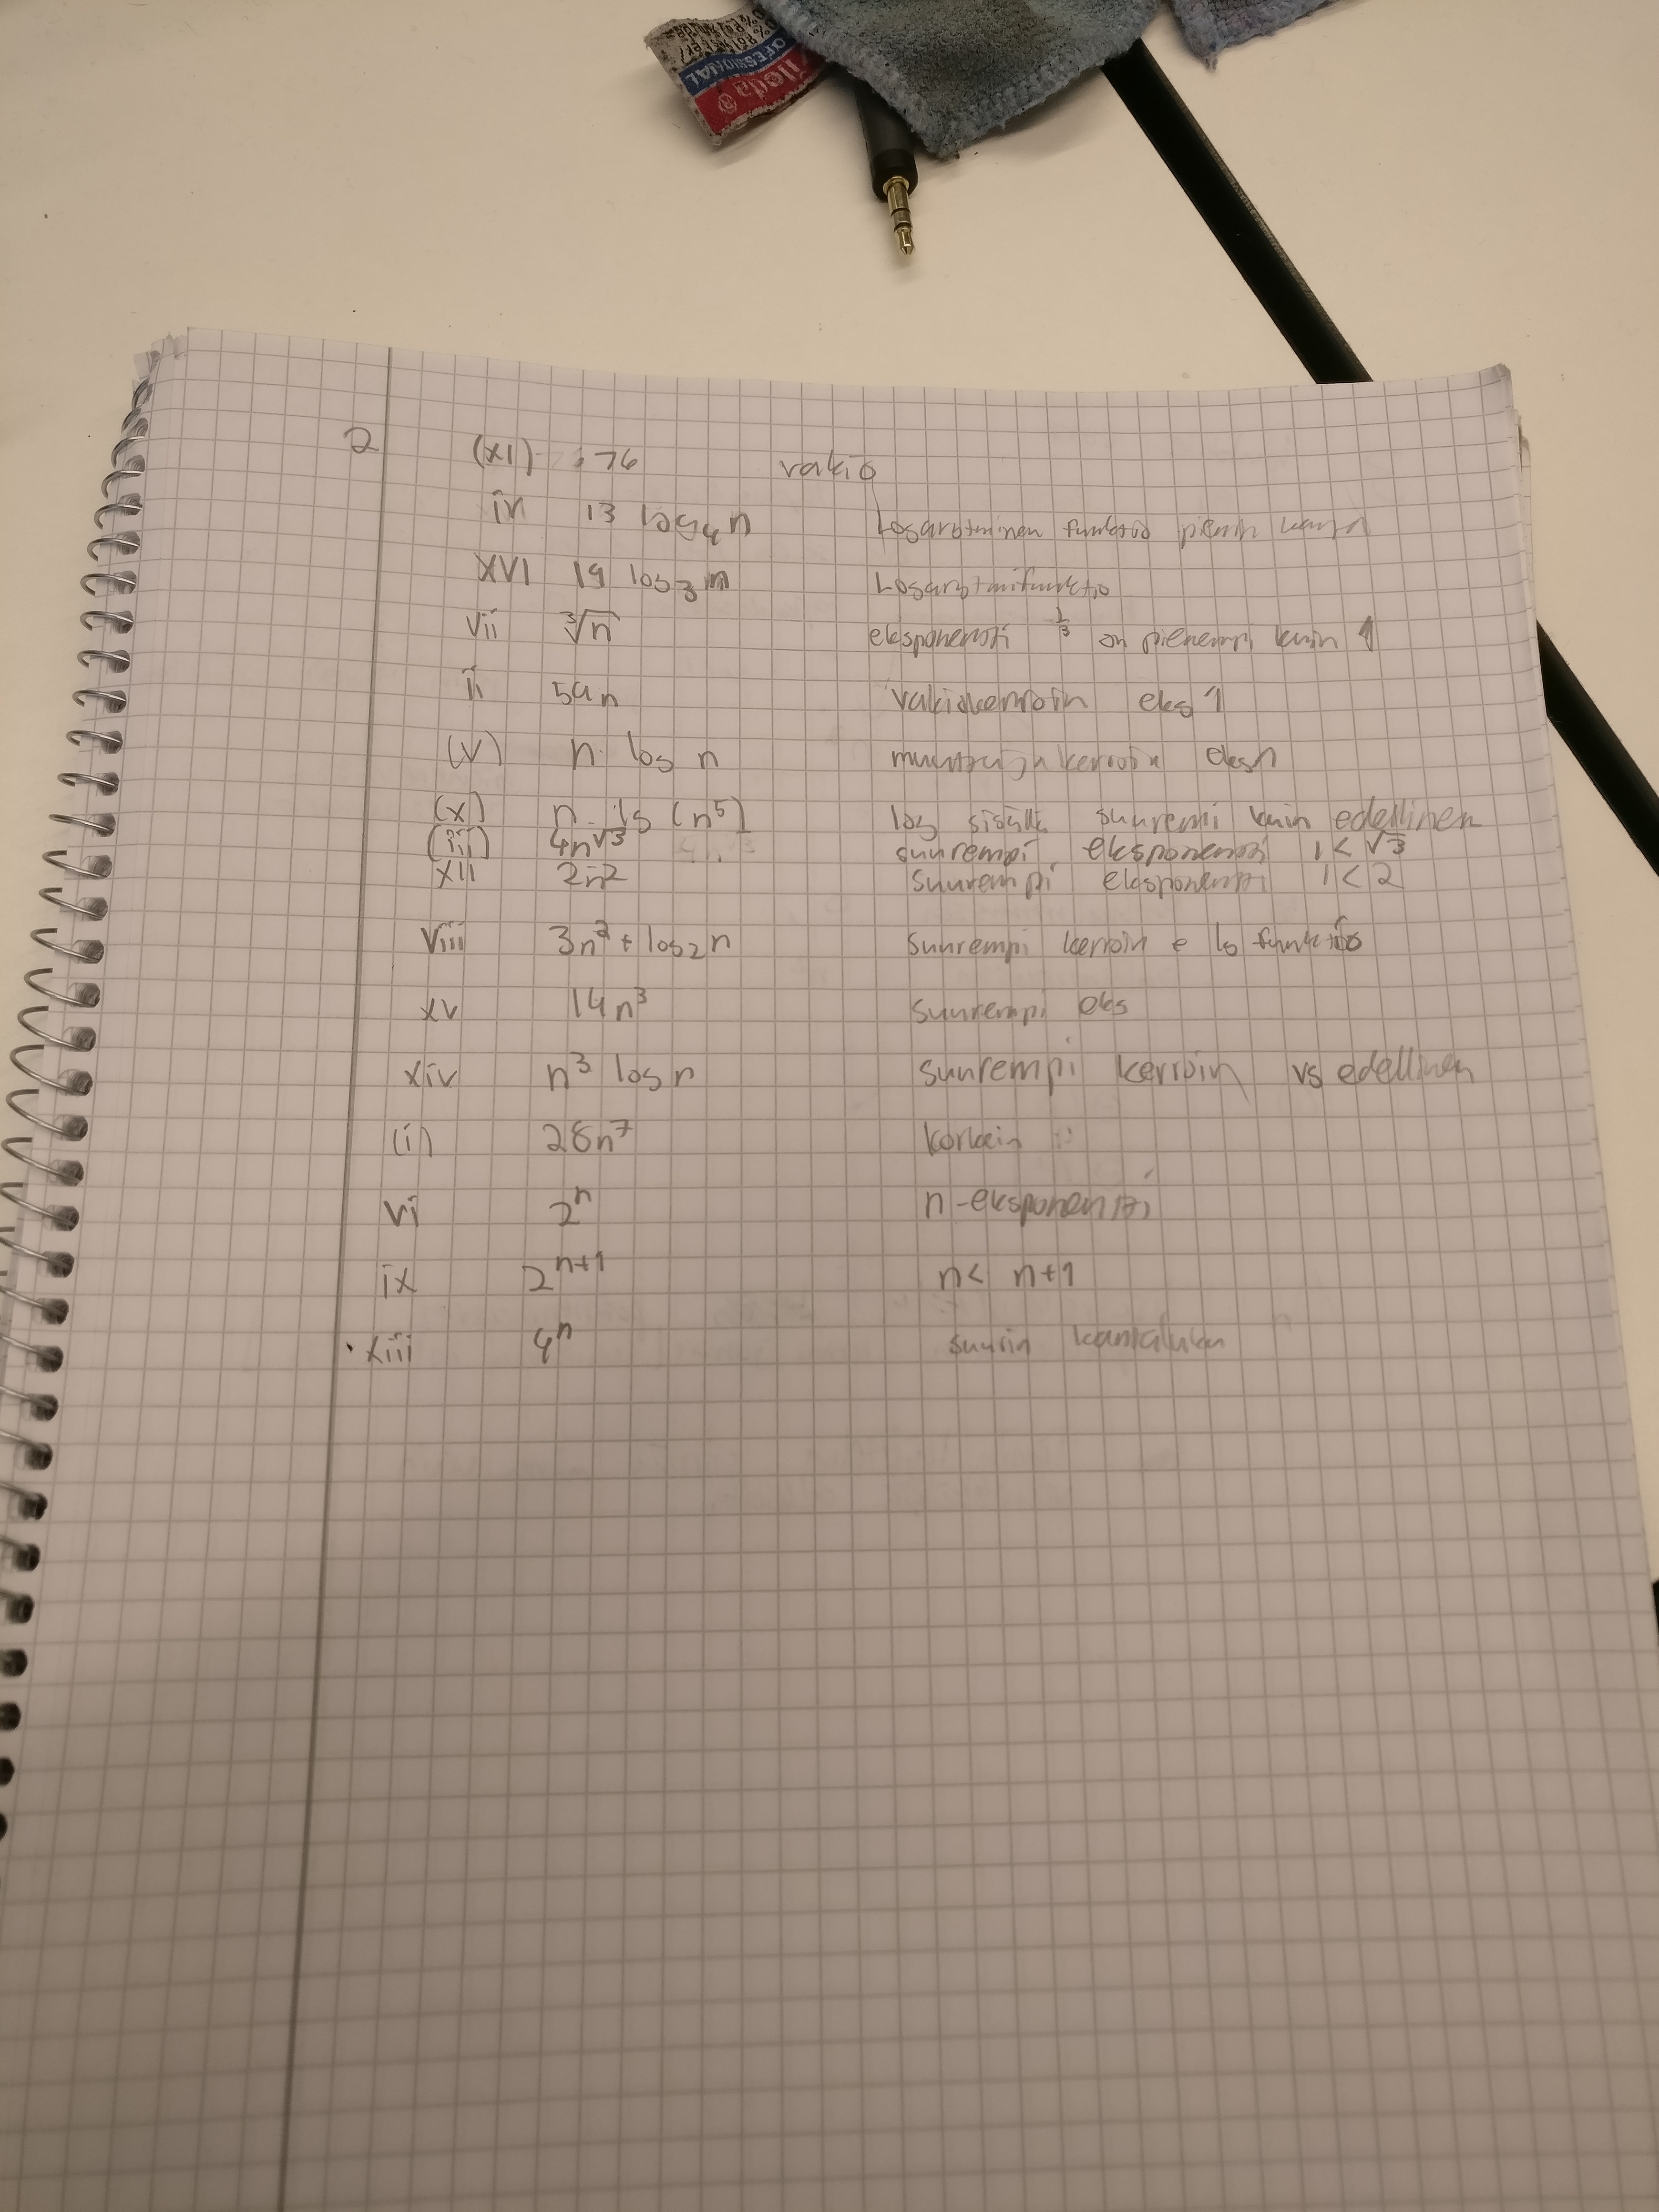 PROFESSIONAL
ileda ®
2 (XI) 76 vakio
iv 13 log₄n Logaritminen funktio pienin kanta
XVI 19 log₃n Logaritmifunktio
vii ∛n eksponentti 1/3 on pienempi kuin 1
ii 59n vakiokerroin eks 1
(v) n· log n muuttuja kerroin eks1
(x) n· lg (n⁵) log sisällä suurempi kuin edellinen
(iii) 4n^√3 suurempi eksponentti 1<√3
XII 2n² suurempi eksponentti 1<2
viii 3n² + log₂n suurempi kerroin e lg funktio
xv 14n³ suurempi eks
xiv n³ log n suurempi kerroin vs edellinen
(i) 28n⁷ korkein
vi 2ⁿ n-eksponentti
ix 2ⁿ⁺¹ n< n+1
xiii 4ⁿ suurin kantaluku